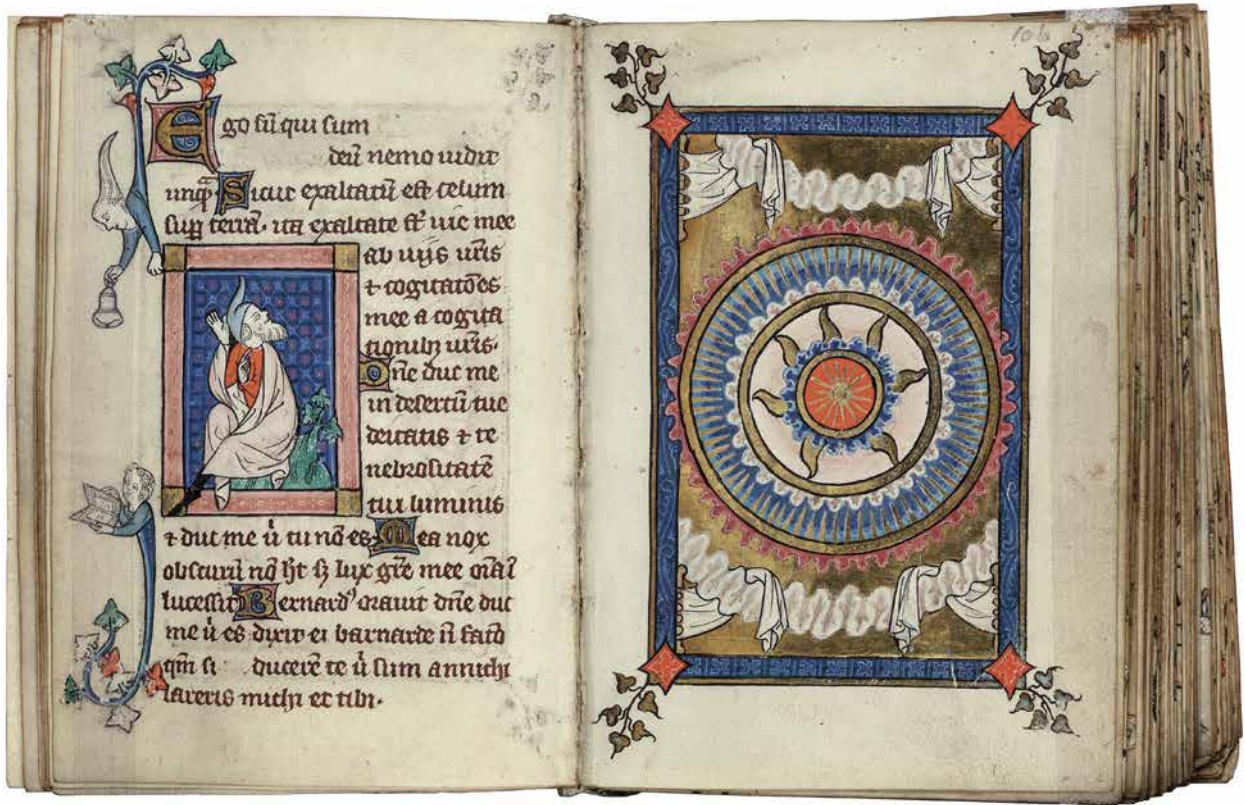 Ego sū qui sum
deū nemo uidit
unqᷓ Sicut exaltatū est celum
supͣ terrā. ita exaltate sͭ uie mee
ab uijs ur̄is
⁊ cogitatōēs
mee a cogita
tionibꝫ ur̄is.
Dn̄e duc me
in desertū tue
deitatis ⁊ te
nebrositatē
tui luminis
⁊ duc me ů tu nō es Mea nox
obscurū nō hꝫ sꝫ lux
lucessit Bernardꝰ orauit dn̄e duc
me ů es dixit ei barnarde n̄ facio
qm̄ si ducerē te ů sum annichi
laveris michi et tibi.
106